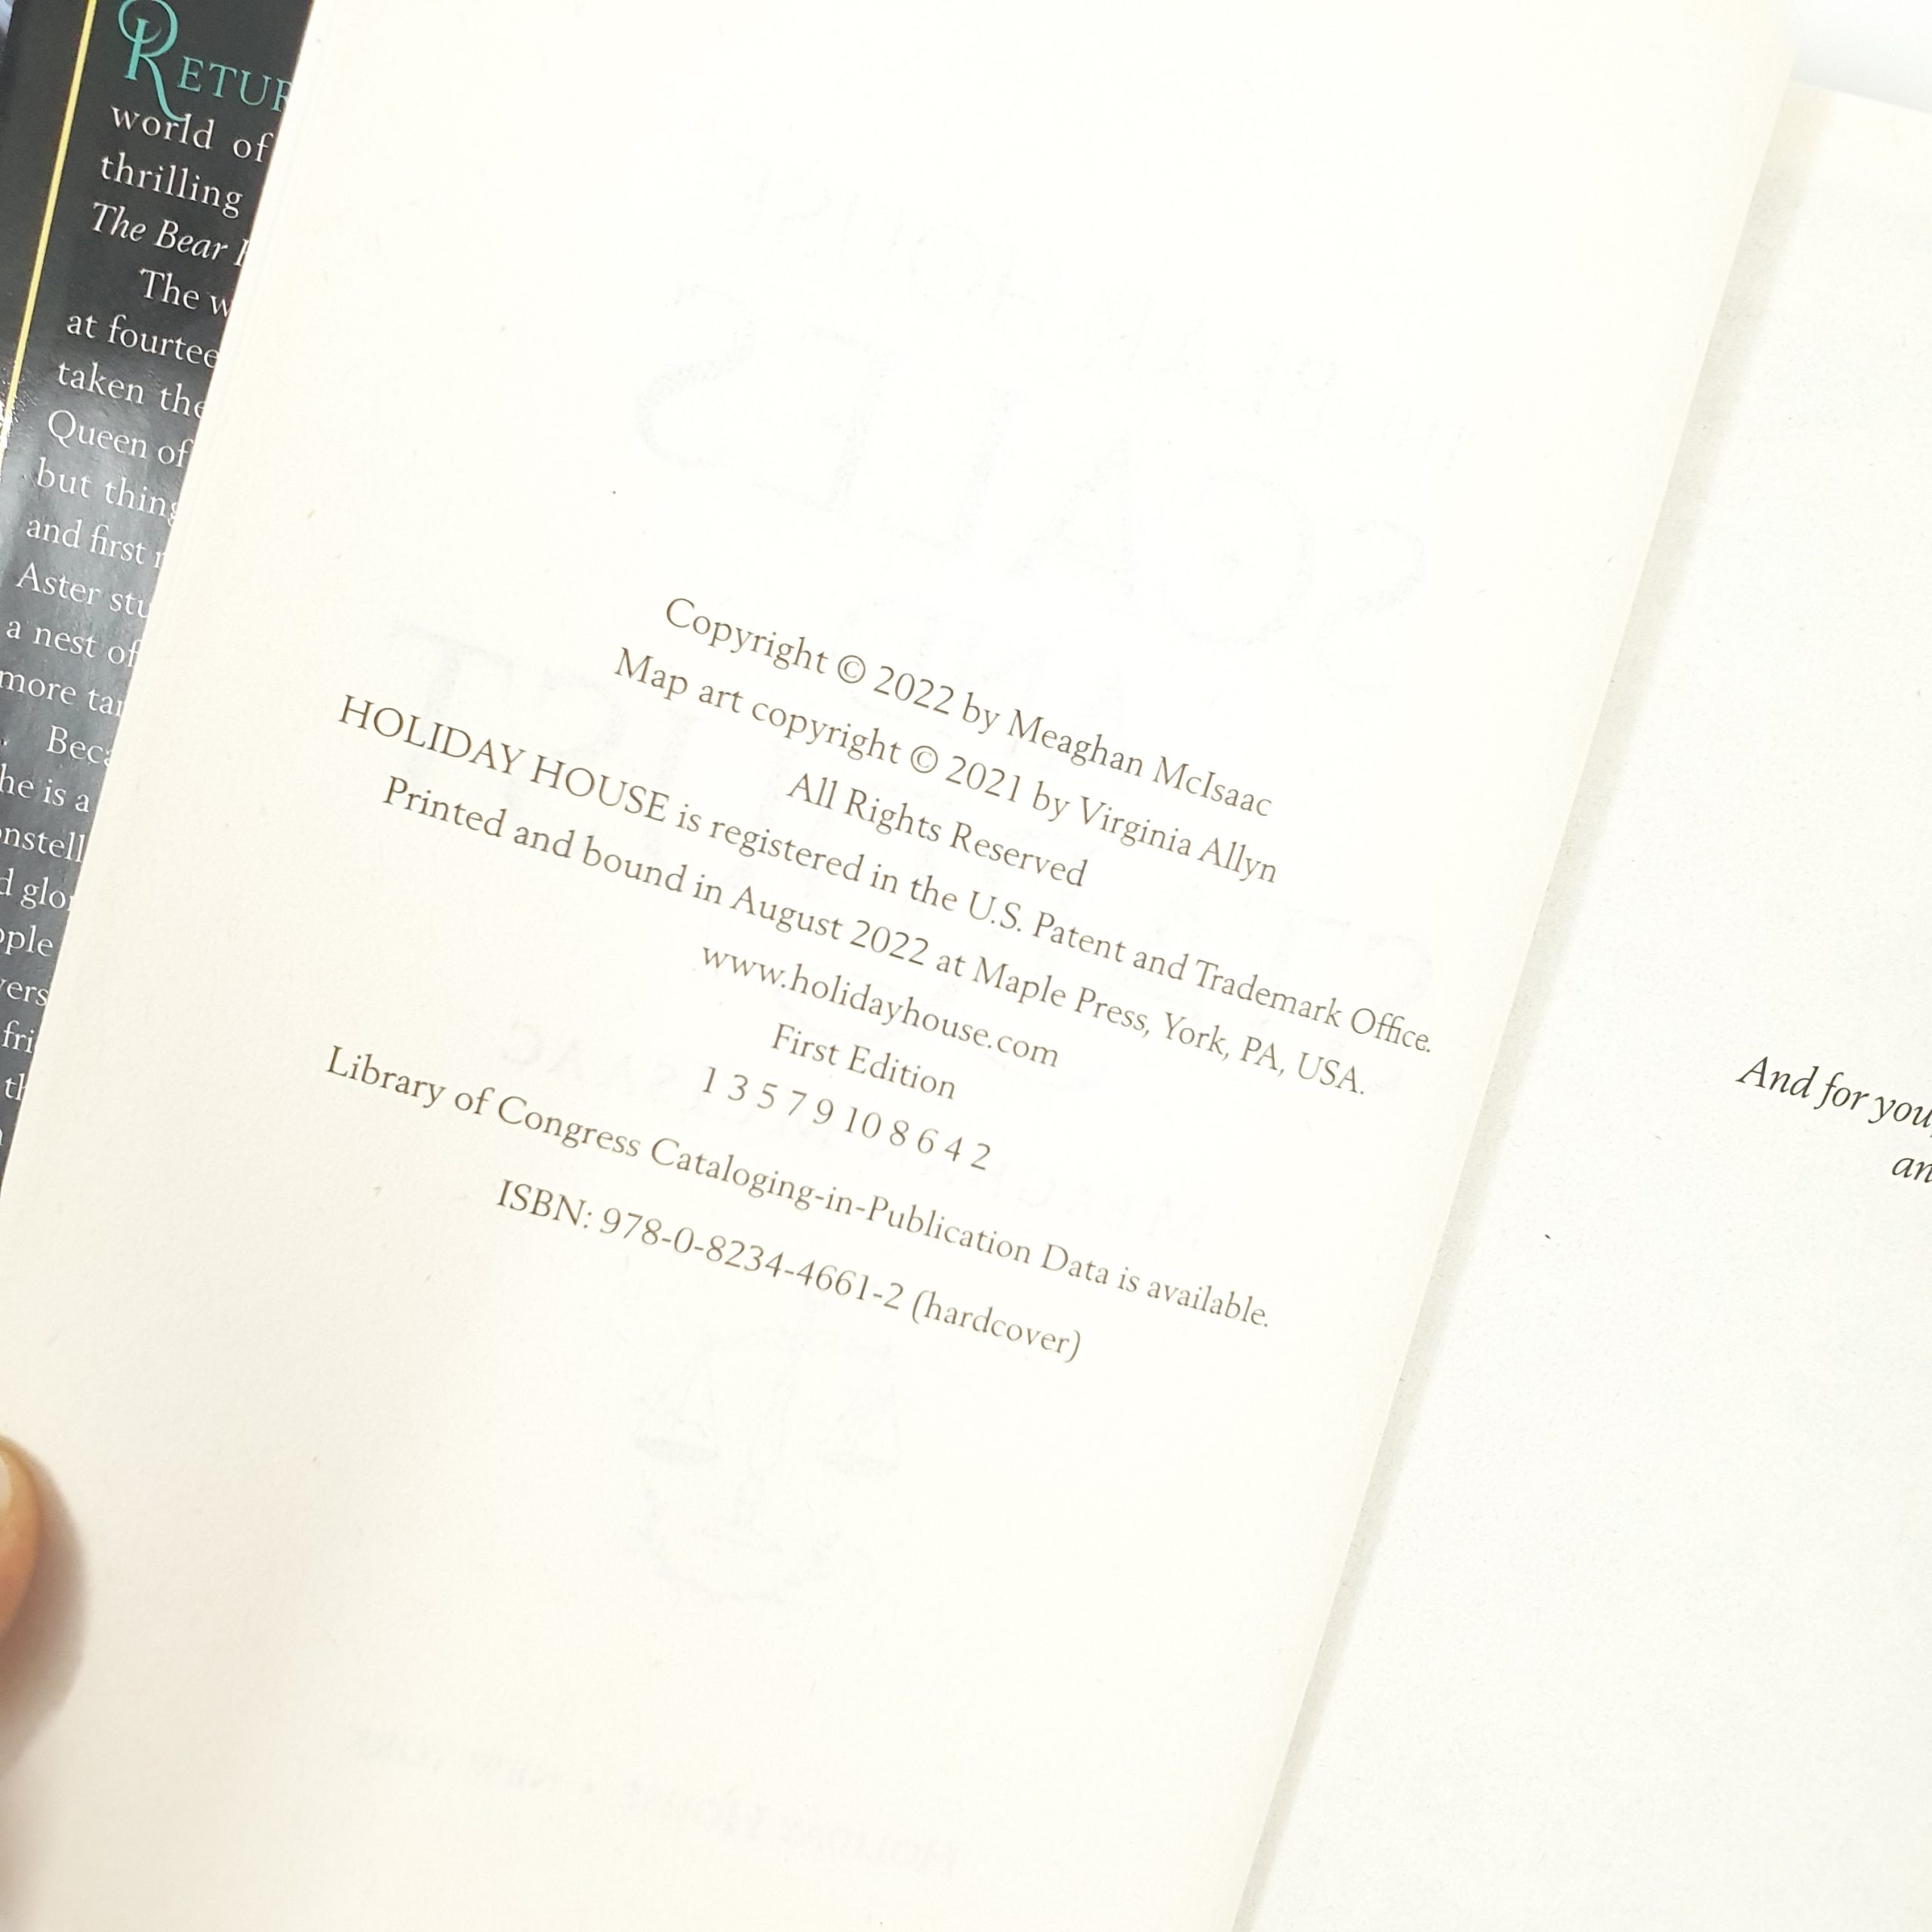 RETUR
world of
thrilling
The Bear
The w
at fourtee
taken the
Queen of
but thing
and first
Aster stu
a nest of
more tar
Beca
he is a
onstell
d glor
ople
vers
fri
th
Copyright © 2022 by Meaghan McIsaac
Map art copyright © 2021 by Virginia Allyn
All Rights Reserved
HOLIDAY HOUSE is registered in the U.S. Patent and Trademark Office.
Printed and bound in August 2022 at Maple Press, York, PA, USA.
www.holidayhouse.com
First Edition
1 3 5 7 9 10 8 6 4 2
Library of Congress Cataloging-in-Publication Data is available.
ISBN: 978-0-8234-4661-2 (hardcover)
And for you
an